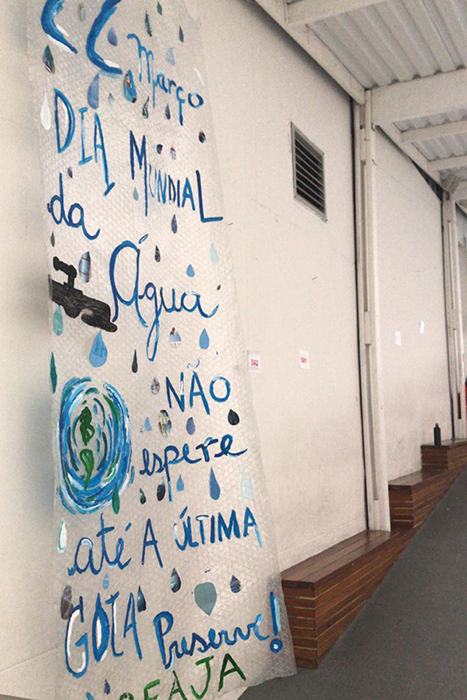 22
Março
DIA MUNDIAL
da
Água
NÃO
espere
até A ÚLTIMA
GOTA Preserve!